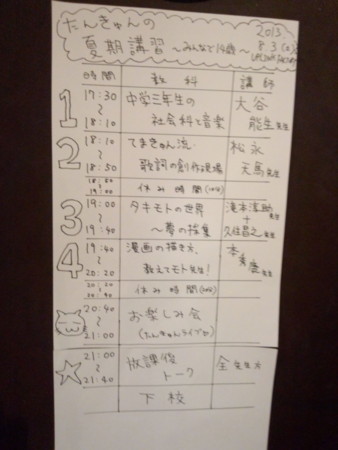 たんきゅんの
夏期講習 〜みんなで14歳〜
2013
8.3(土)
時間 教科 講師
1 17:30〜18:10 中学三年生の 大谷
社会科と音楽 能生先生
2 18:10〜18:50 てまきゅん流 松永
歌詞の創作現場 天馬先生
18:50〜19:00 休み時間(10分)
3 19:00〜19:40 タキモトの世界 滝本淳助先生
〜夢の採集 + 久住昌之先生
4 19:40〜20:20 漫画の描き方、 本 秀康先生
教えてモト先生!
20:20〜20:40 休み時間
20:40〜21:00 お楽しみ会
(たんきゅんライブか)
21:00〜21:40 放課後 全先生方
トーク
下校